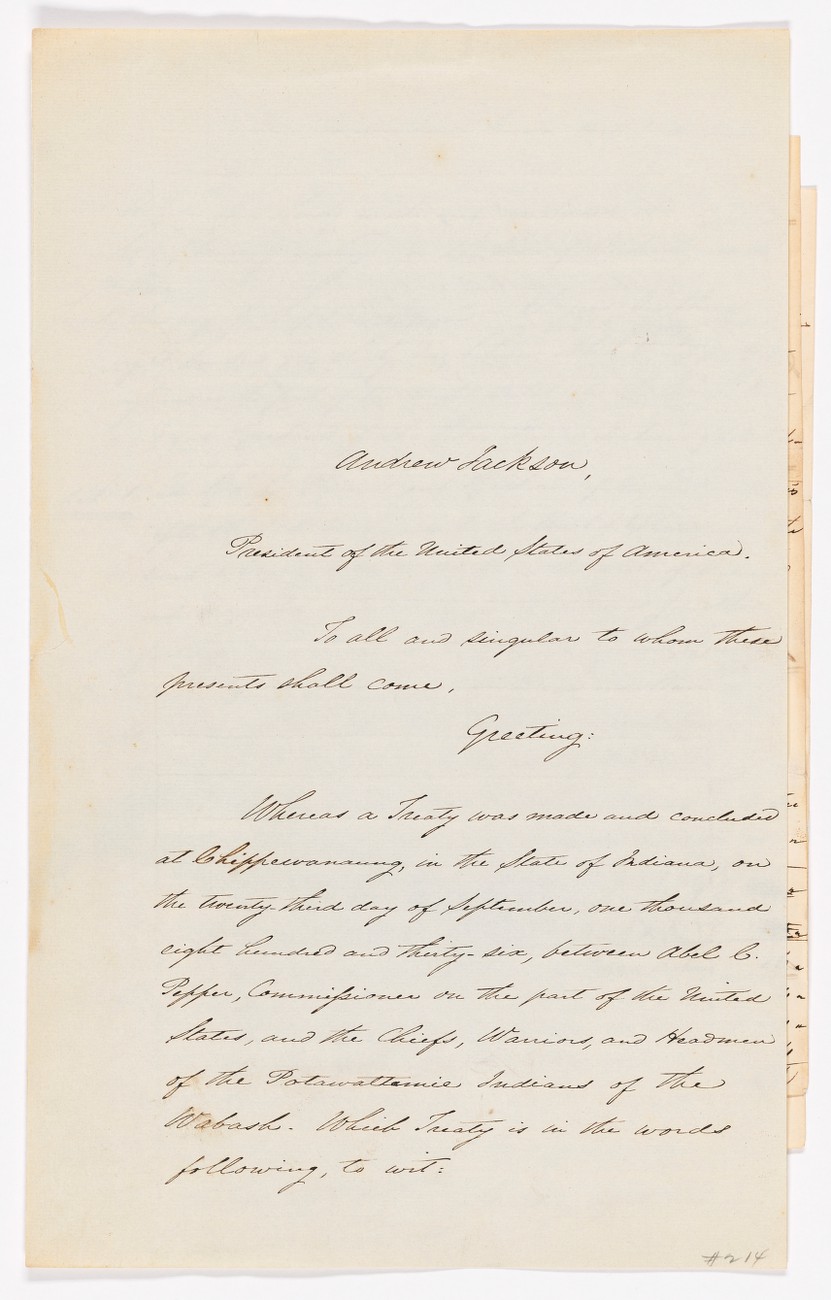 Andrew Jackson,
President of the United States of America.
To all and singular to whom these
presents shall come,
Greeting:
Whereas a Treaty was made and concluded
at Chippewanaung, in the State of Indiana, on
the twenty-third day of September, one thousand
eight hundred and thirty-six, between Abel C.
Pepper, Commissioner on the part of the United
States, and the Chiefs, Warriors, and Headmen
of the Potawattamie Indians of the
Wabash. Which Treaty is in the words
following, to wit:
#214